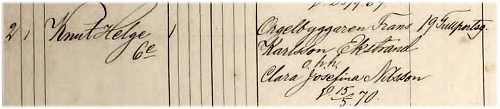 2 1 Knut Helge 1 Orgelbyggaren Frans 19 Tullportsg.
6e Karlsson Ekstrand
o. h. h.
Clara Josefina Nilsson
15/5 70.